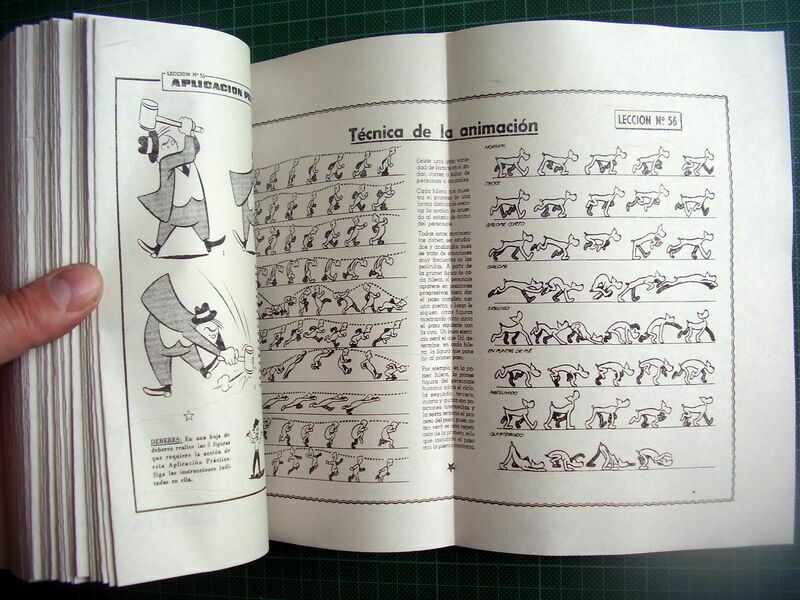 LECCION Nº 53
APLICACION P
DEBERES: En una hoja de
deberes realice las 5 figuras
que requiere la acción de
esta Aplicación Práctica.
Siga las instrucciones indi-
cadas en ella.
Técnica de la animación
LECCION Nº 56
Existe una gran varie-
dad de formas en el an-
dar, correr o saltar de
personas o animales.
Cada hilera nos mues-
tra el proceso de una
forma distinta de ejecu-
tar la acción de acuer-
do al estado de ánimo
del personaje.
Todos estos movimien-
tos deben ser estudia-
dos y analizados pues
se trata de situaciones
muy frecuentes en las
películas. A partir de
la primer figura de ca-
da hilera, el personaje
aparece en posiciones
progresivas hasta dar
el paso completo con
una pierna y luego le
siguen otras figuras
mostrando cómo inicia
el paso siguiente con
la otra. Un buen ejerci-
cio será el que Ud. de-
termine, en cada hile-
ra, la figura que pone
fin al primer paso.
Por ejemplo, en la pri-
mer hilera, la primer
figura del personaje
humano inicia el ciclo,
la segunda, tercera,
cuarta y quinta son po-
siciones intermedias y
la sexta termina el pro-
ceso del paso, pues, co-
mo verá es una repeti-
ción de la primera, sólo
que iniciando el paso
con la pierna contraria.
NORMAL
TROTE
GALOPE CORTO
GALOPE
SIGILOSO
EN PUNTAS DE PIE
OLFATEANDO